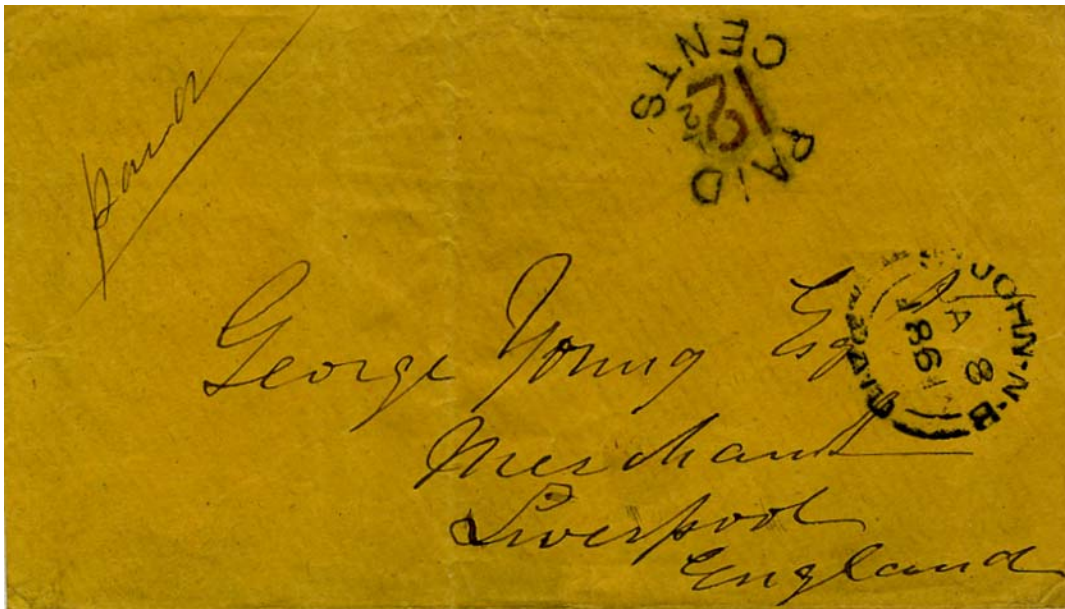 paid
PAID
12½
CENTS
ST JOHN·N·B
JA 8
1861
George Young Esq
Merchant
Liverpool
England